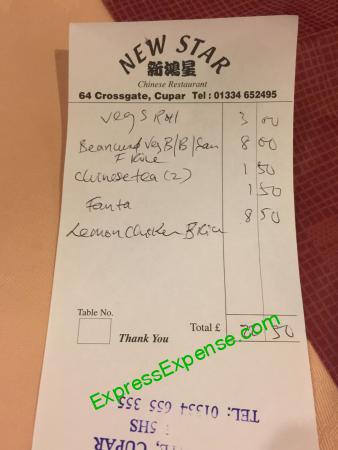 NEW STAR
新鴻星
Chinese Restaurant
64 Crossgate, Cupar Tel : 01334 652495
Veg S Roll 3 00
Beancurd Veg B/B/Sau 8 00
F Rice
Chinese tea (2) 1 50
Fanta 1 50
Lemon Chicken B Rice 8 50
Table No.
Thank You
Total £ 50
ExpressExpense.com
TEL: 01334 655 355
5HS
CUPAR